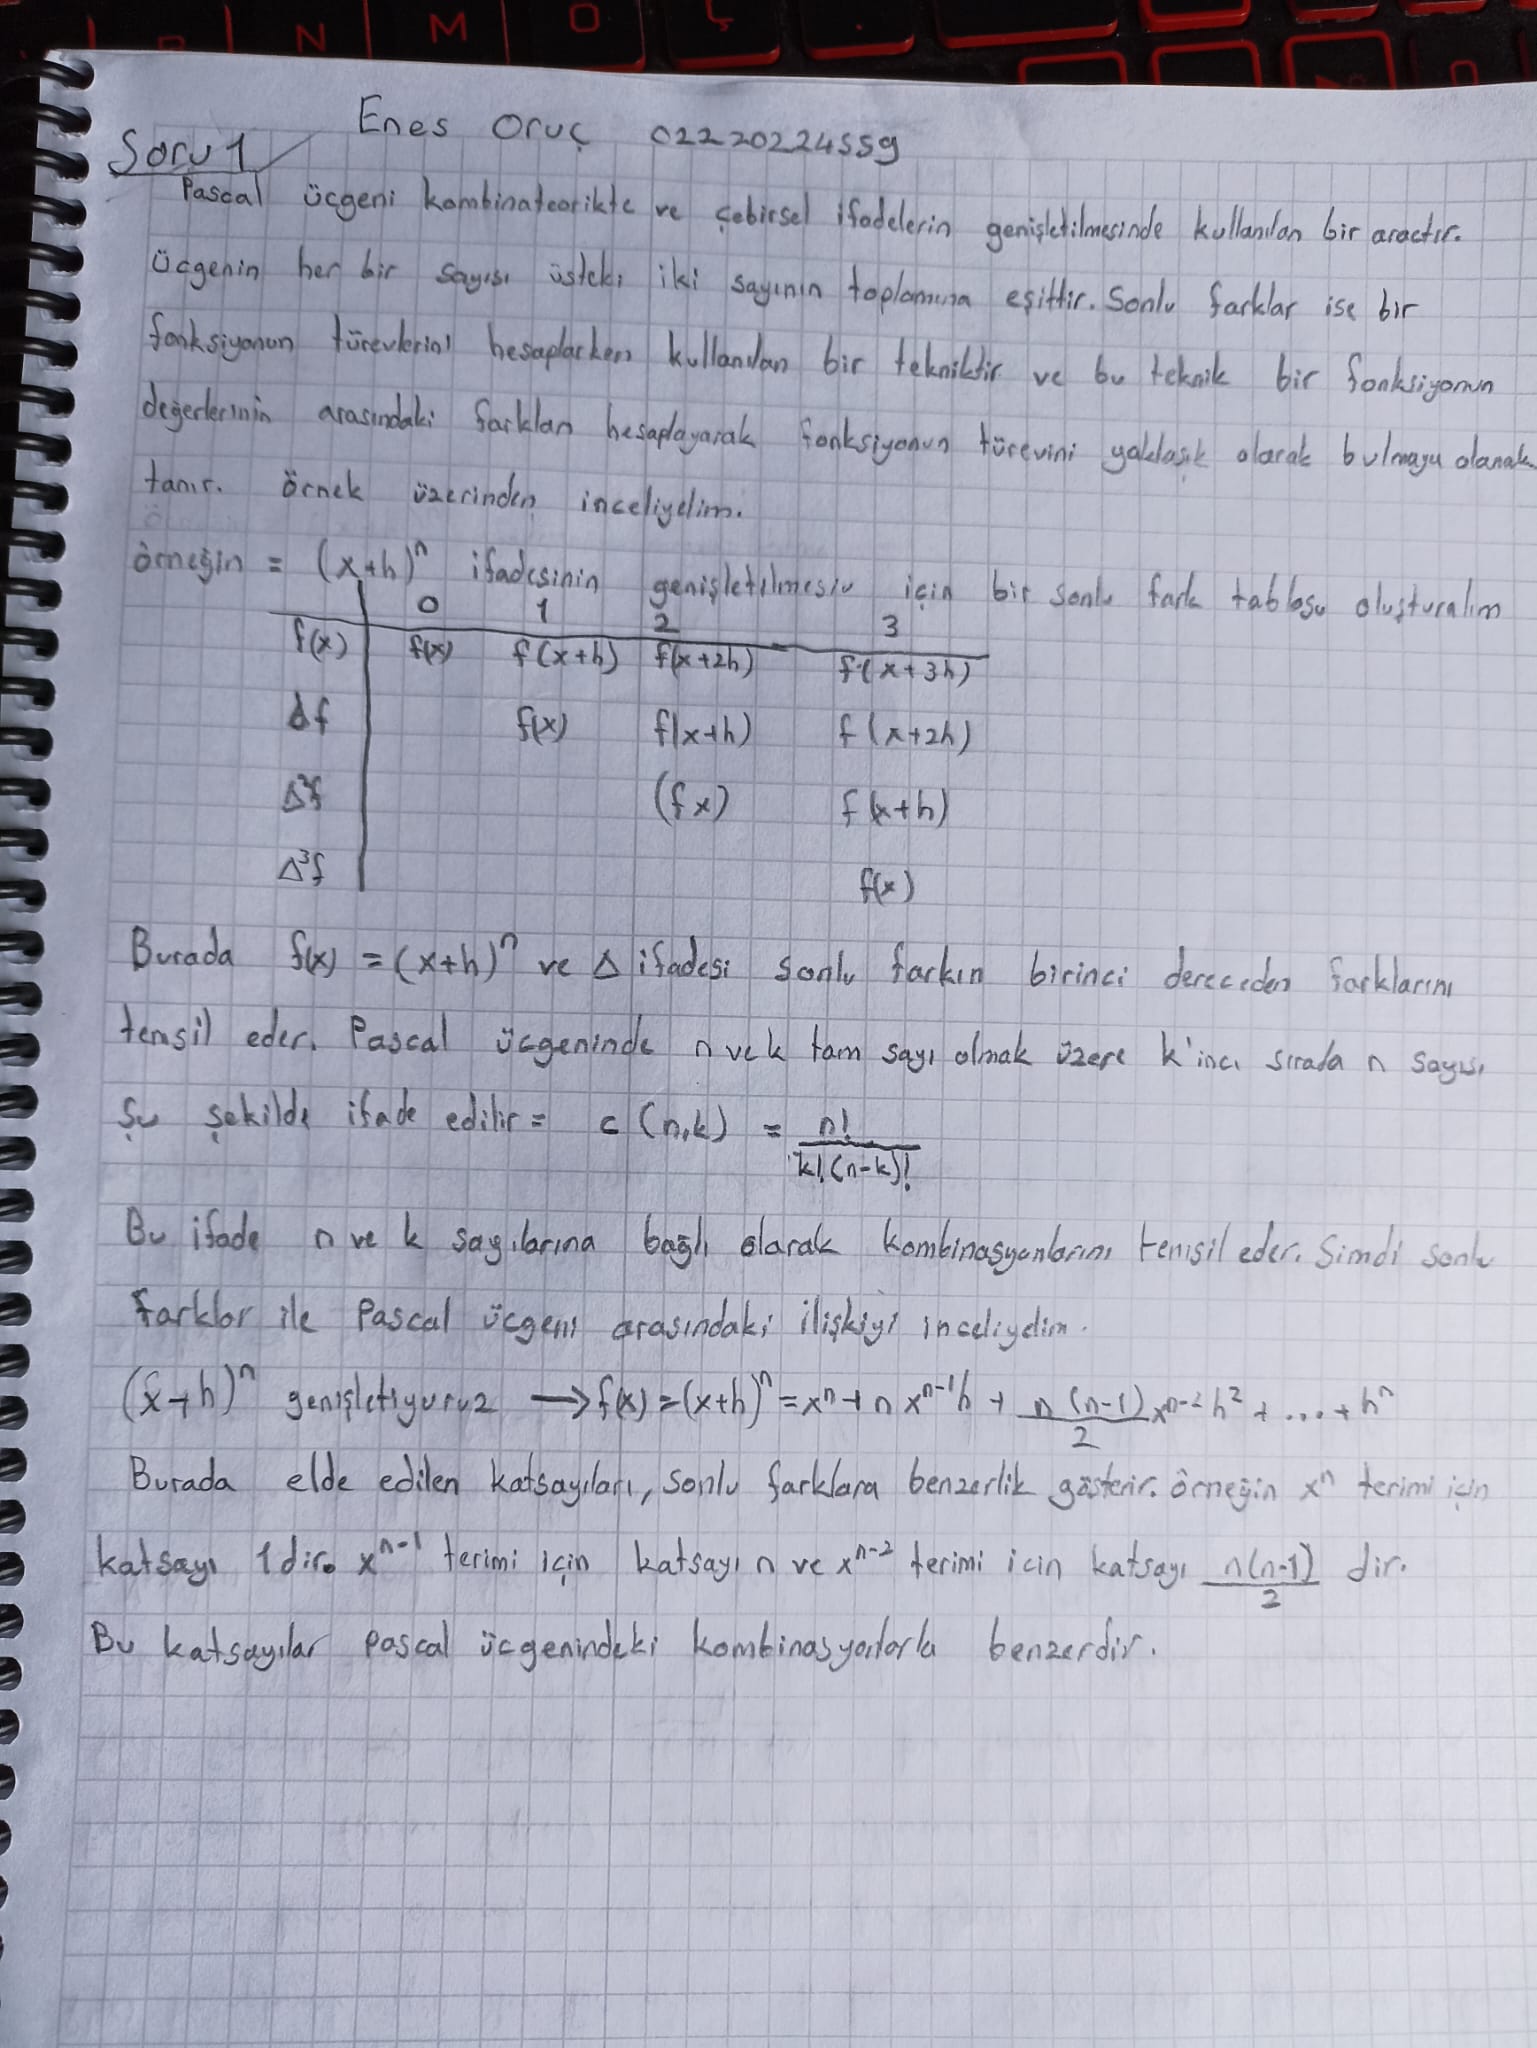 Enes Oruç 02220224559
Soru 1
Pascal üçgeni kombinateorikte ve çebirsel ifadelerin genişletilmesinde kullanılan bir aractır.
Üçgenin her bir sayısı üsteki iki sayının toplamına eşittir. Sonlu farklar ise bir
fonksiyonun türevlerini hesaplarken kullanılan bir tekniktir ve bu teknik bir fonksiyonun
değerlerinin arasındaki farkları hesaplayarak fonksiyonun türevini yaklaşık olarak bulmaya olanak
tanır. örnek üzerinden inceliyelim.
örneğin = (x+h)^n ifadesinin genişletilmesi için bir sonlu fark tablosu oluşturalım
0 1 2 3
f(x) f(x) f(x+h) f(x+2h) f(x+3h)
Δf f(x) f(x+h) f(x+2h)
Δ²f (fx) f(x+h)
Δ³f f(x)
Burada f(x) = (x+h)^n ve Δ ifadesi sonlu farkın birinci dereceden farklarını
temsil eder. Pascal üçgeninde n ve k tam sayı olmak üzere k'inci sırada n sayısı
şu şekilde ifade edilir = c (n,k) = n! / k!(n-k)!
Bu ifade n ve k sayılarına bağlı olarak kombinasyonlarını temsil eder. Simdi sonlu
farklar ile Pascal üçgeni arasındaki ilişkiyi inceliyelim.
(x+h)^n genişletiyoruz → f(x) = (x+h)^n = x^n + n x^n-1 h + n(n-1)/2 x^n-2 h² + ... + h^n
Burada elde edilen katsayıları, sonlu farklara benzerlik gösterir. örneğin x^n terimi için
katsayı 1 dir. x^n-1 terimi için katsayı n ve x^n-2 terimi icin katsayı n(n-1)/2 dir.
Bu katsayılar pascal üçgenindeki kombinasyonlarla benzerdir.